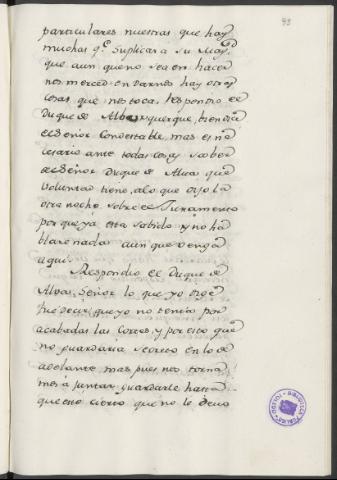 93
particulares nuestras que hay
muchas qe. suplicar a su Magd
que aun que no sea en hacer
nos merced en darnos hay otras
cosas que nos toca. Respondio el
Duque de Alburquerque, bien dice
el Señor Condestable, mas es ne
cesario ante todas cosas saber
del Señor Duque de Alva que
voluntad tiene, a lo que dijo la
otra noche sobre el Juramento
por que ya esta sabido y no ha
blare nada aun que venga
aqui.
Respondio el Duque de
Alva, Señor lo que yo dige
fue decir que yo no tenia por
acabadas las Cortes, y por eso que
no guardaria secreto en lo de
adelante, mas pues nos torna
mos a juntar guardarle hasta
que esto cierto que no le devo
BIBLIOTECA PUBLICA
TOLEDO